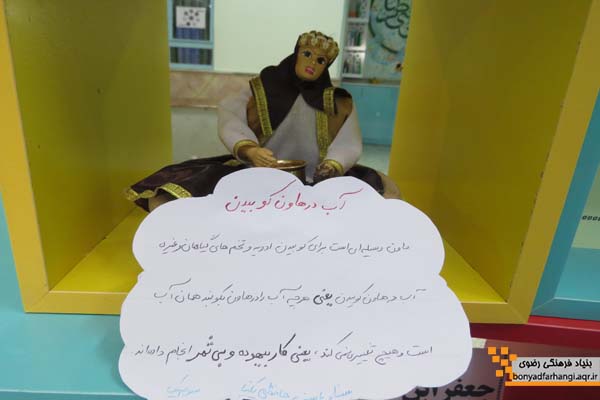 آب در هاون کوبیدن
هاون وسیله‌ای است برای کوبیدن ادویه و تخم‌های گیاهان و غیره
آب در هاون کوبیدن یعنی هر چه آب را در هاون بکوبند همان آب
است و هیچ تغییر نمی‌کند، یعنی کار بیهوده و بی ثمر انجام داده‌اند
بنیاد فرهنگی رضوی
bonyadfarhangi.aqr.ir
جعفر